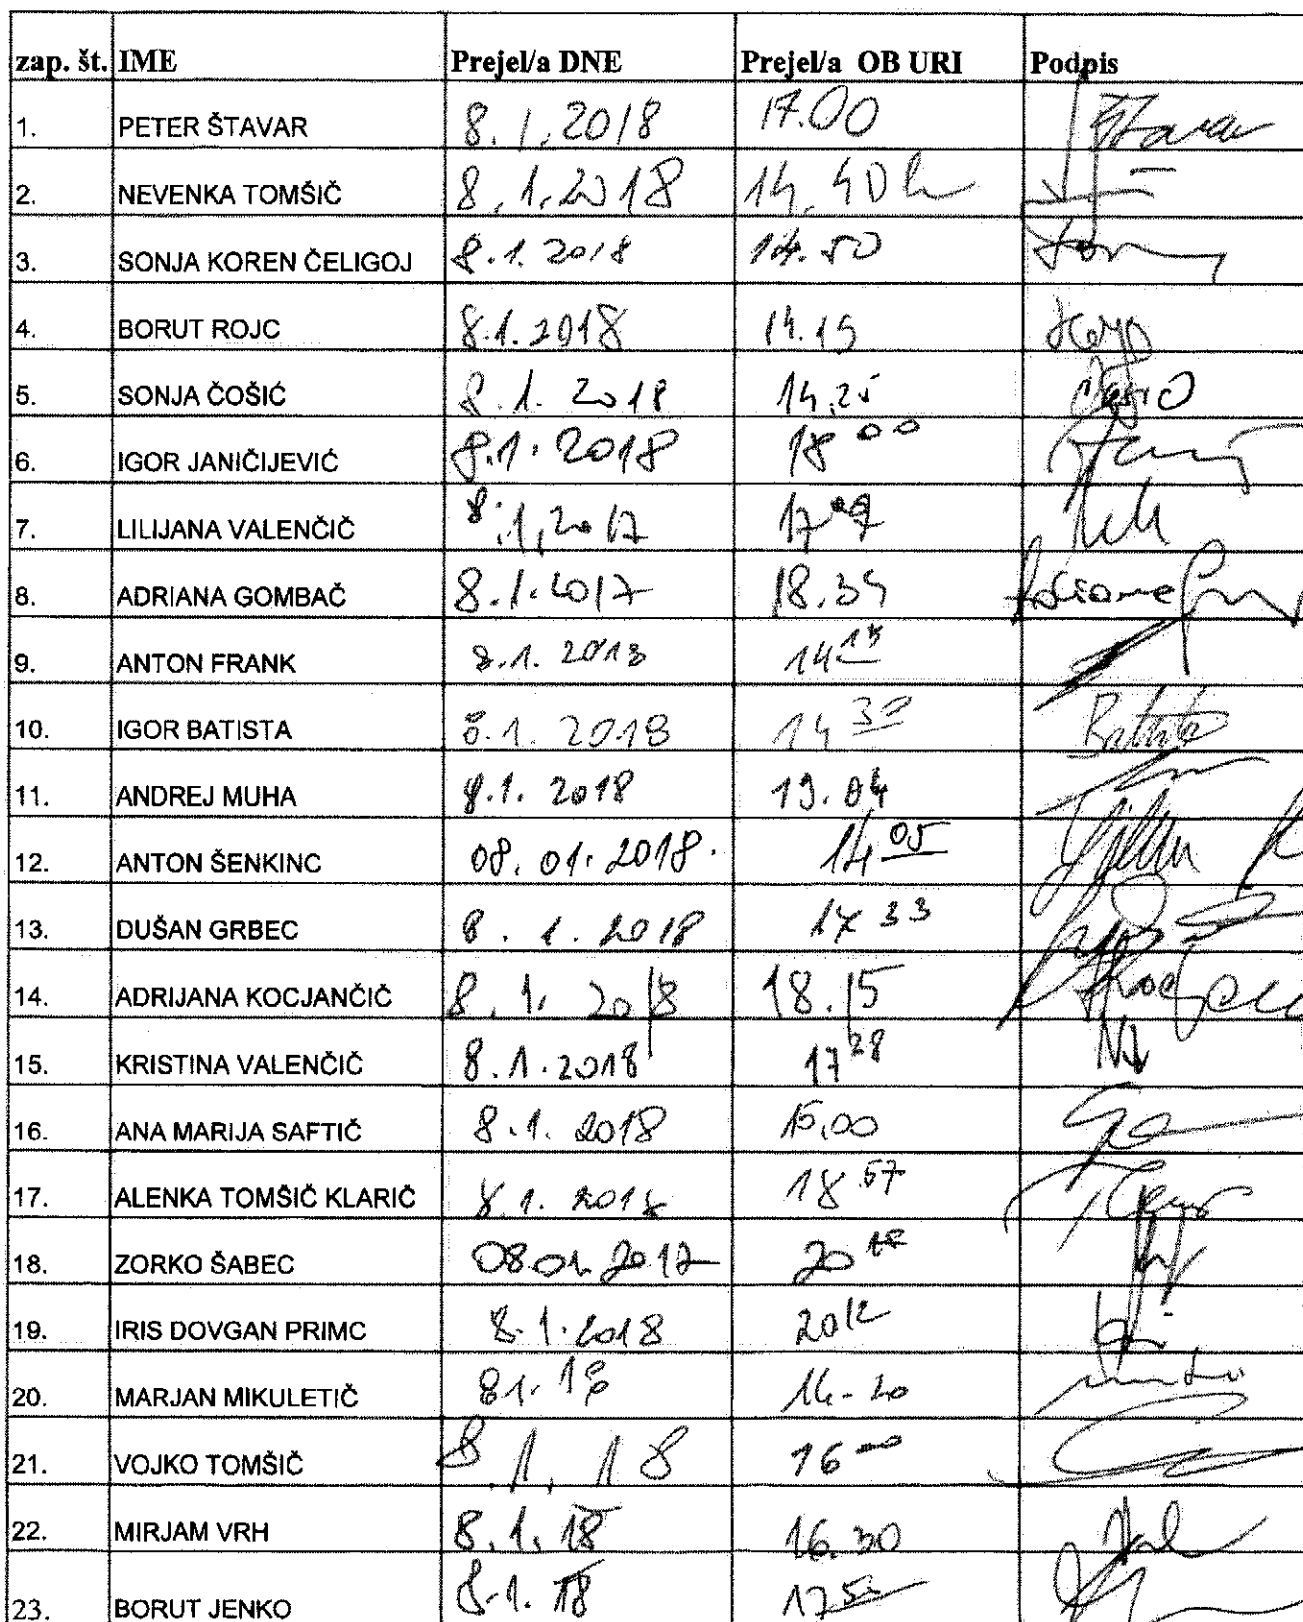 zap. št. IME Prejel/a DNE Prejel/a OB URI Podpis
1. PETER ŠTAVAR 8.1.2018 17.00 Štavar
2. NEVENKA TOMŠIČ 8.1.2018 14.40 h
3. SONJA KOREN ČELIGOJ 8.1.2018 14.50
4. BORUT ROJC 8.1.2018 14.15
5. SONJA ČOŠIĆ 8.1.2018 14.25
6. IGOR JANIČIJEVIĆ 8.1.2018 18 00
7. LILIJANA VALENČIČ 8.1,2017
8. ADRIANA GOMBAČ 8.1.2017 18.35
9. ANTON FRANK 8.1.2018 14 15
10. IGOR BATISTA 8.1.2018 14 30 Batista
11. ANDREJ MUHA 8.1.2018 19.04
12. ANTON ŠENKINC 08.01.2018. 14 05
13. DUŠAN GRBEC 8.1.2018 17 33
14. ADRIJANA KOCJANČIČ 8.1.2018 18.15
15. KRISTINA VALENČIČ 8.1.2018 17 28
16. ANA MARIJA SAFTIČ 8.1.2018 15,00
17. ALENKA TOMŠIČ KLARIČ 8.1.2018 18 57
18. ZORKO ŠABEC 08.01.2017 20
19. IRIS DOVGAN PRIMC 8.1.2018 20 12
20. MARJAN MIKULETIČ 8.1.18 14-20
21. VOJKO TOMŠIČ 8.1.18 16 00
22. MIRJAM VRH 8.1.18 16.30
23. BORUT JENKO 8.1.18